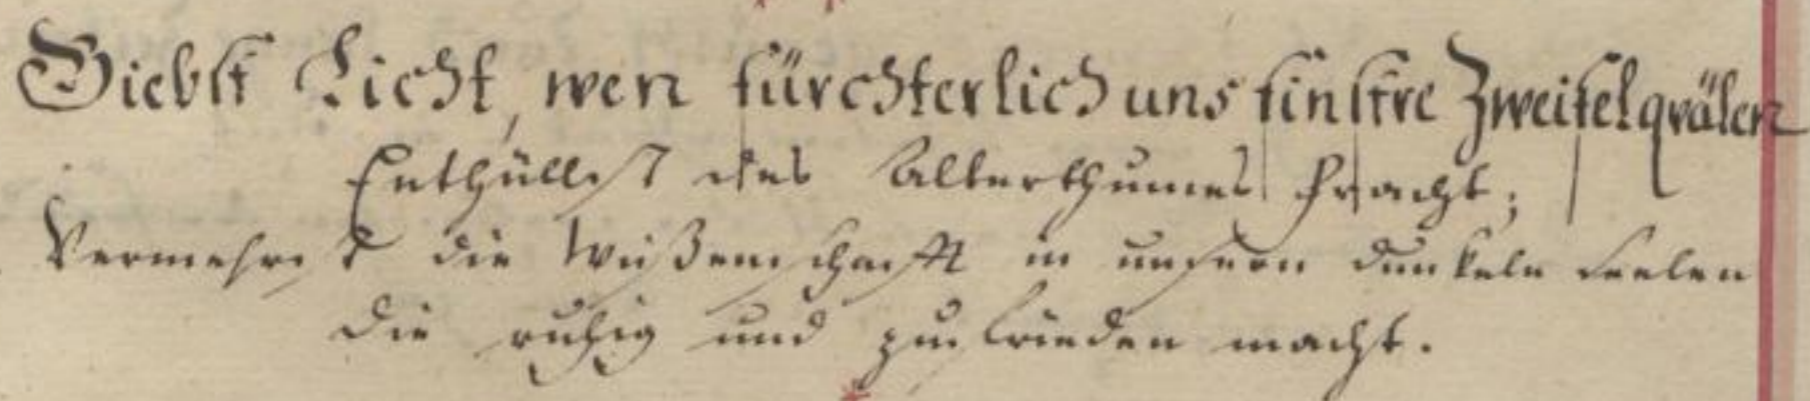 Giebst Licht, wen fürchterlich uns finstre Zweifel qvälen
Enthüllest des Alterthumes Pracht;
Vermehrst die Wißenschafft in unsern dunkeln Seelen
die ruhig und zufrieden macht.